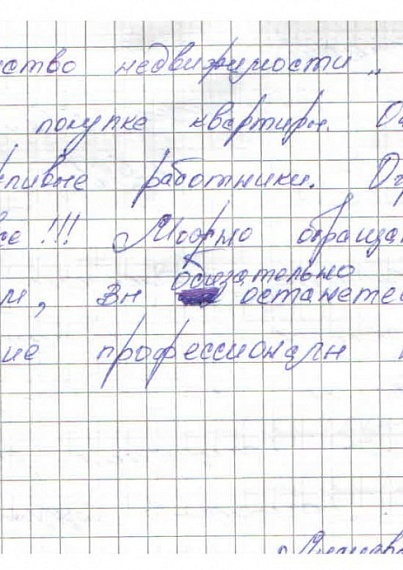 ство недвижимости „
покупке квартиры. О
ливые работники. Ог
е!!! Можно обраща
обязательно
м, вы останете
ие профессионалы